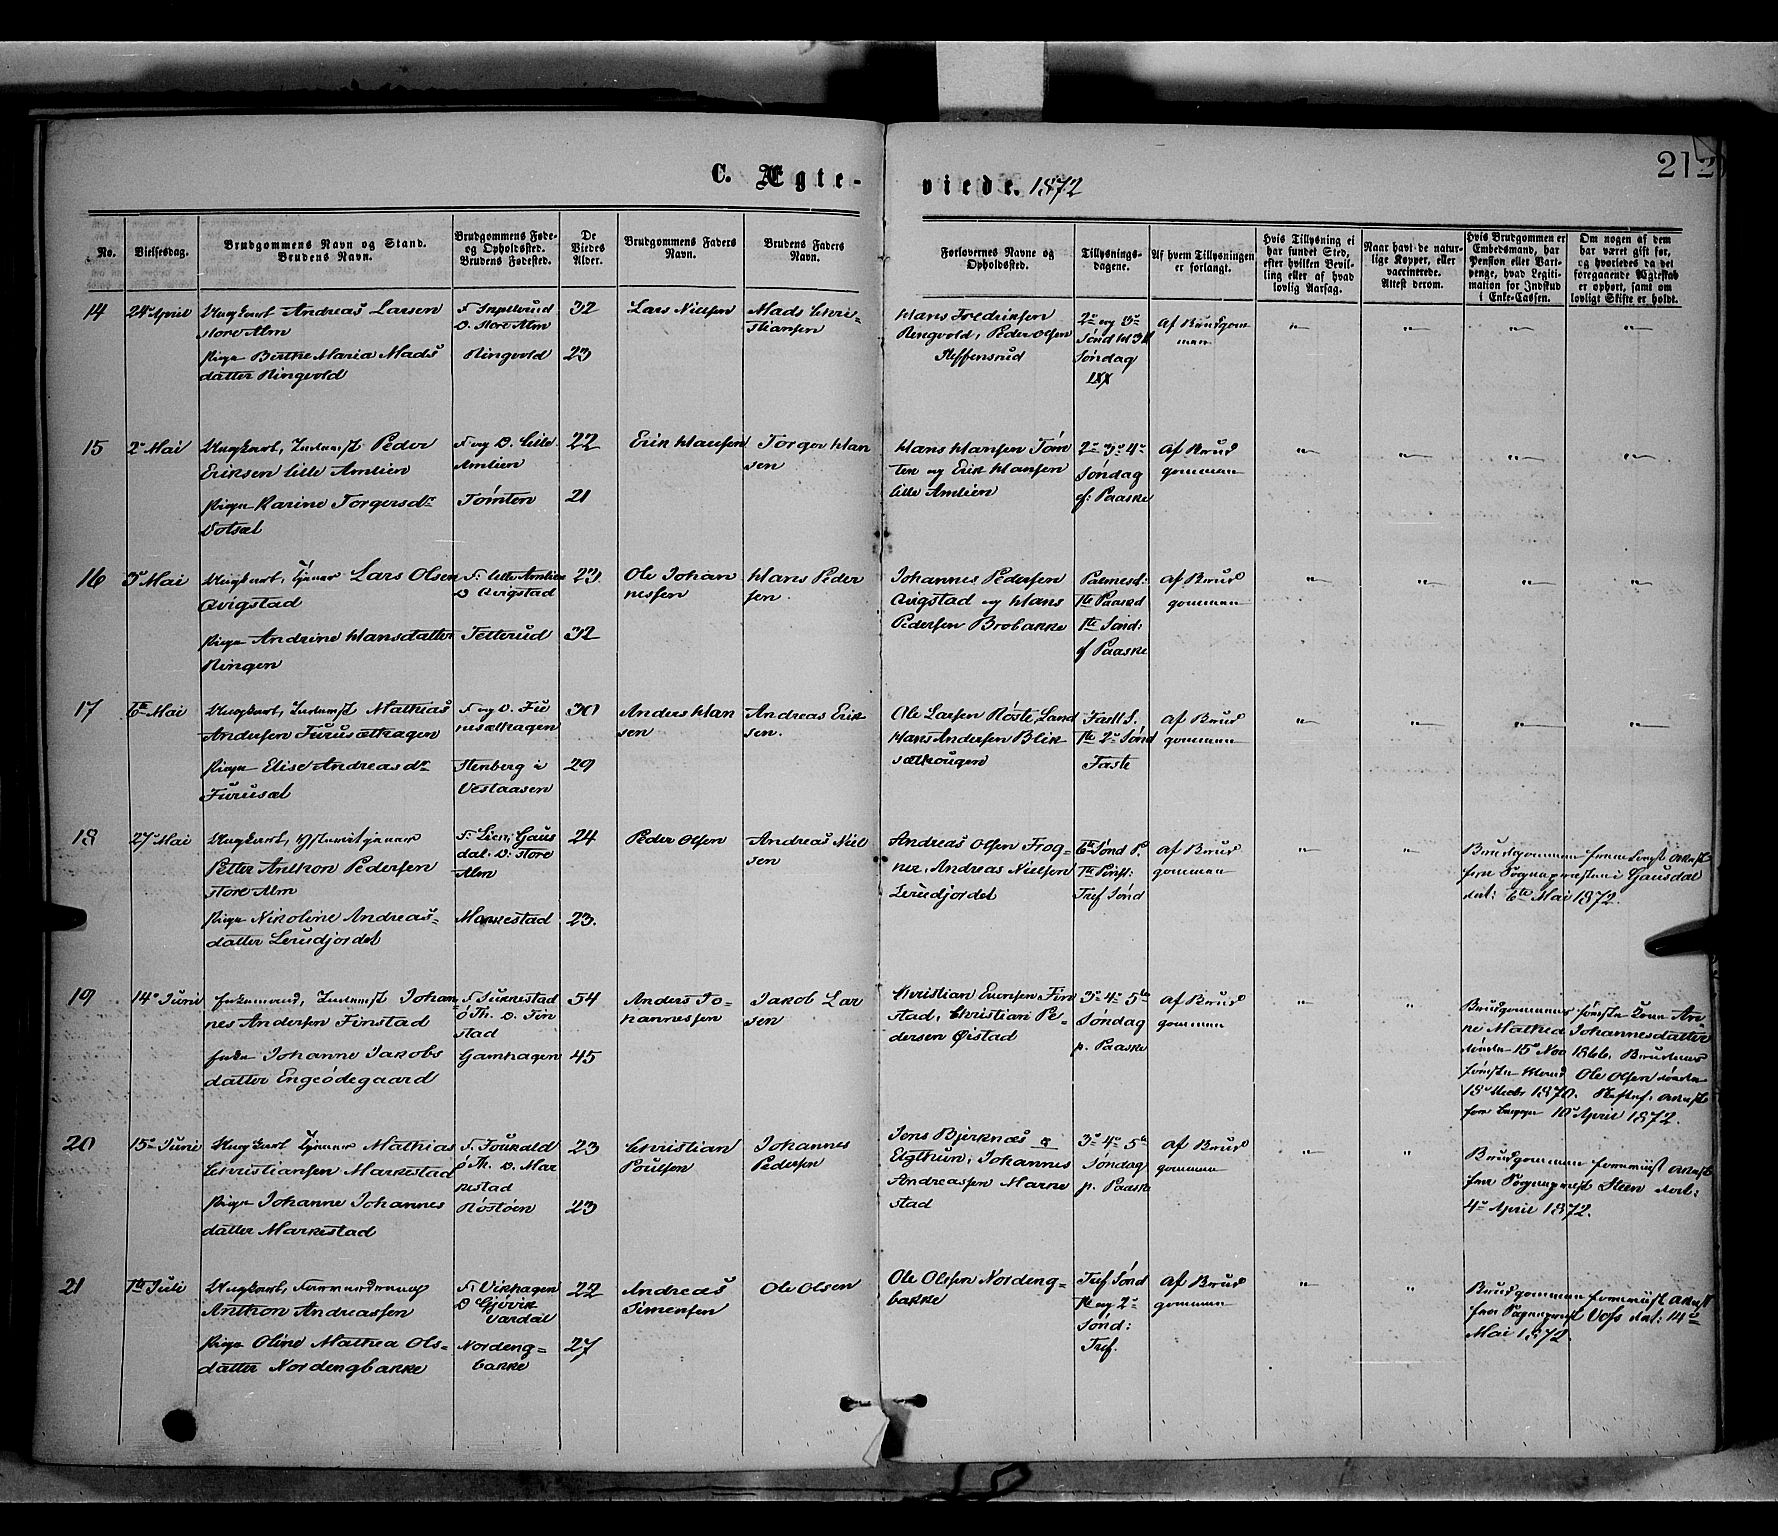 C. Ægte-
viede. 1872
212
No.
Vielsesdag.
Brudgommens Navn og Stand.
Brudens Navn.
Brudgommens Føde-
og Opholdssted.
Brudens Fødested.
De
Viedes
Alder.
Brudgommens Faders
Navn.
Brudens Faders
Navn.
Forlovernes Navne og
Opholdssted.
Tillysnings-
dagene.
Af hvem Tillysningen
er forlangt.
Hvis Tillysning ei
har fundet Sted,
efter hvilken Bevil-
ling eller af hvad
lovlig Aarsag.
Naar havt de natur-
lige Kopper, eller
vaccinerede.
Attest derom.
Hvis Brudgommen er
Embedsmand, har
Pension eller Vart-
penge, hvad Legiti-
mation for Indskud
i Enke-Cassen.
Om nogen af dem
har været gift før,
og hvorledes da det
foregaaende Ægteskab
er ophørt, samt om
lovligt Skifte er holdt.
14
24 April
Ungkarl Andreas Larsen
store Alm
Pige Berthe Maria Mads
datter Ringvold
O. Store Alm
Ringvold
32
23
Lars Nielsen
Mads Chri-
stiansen
Hans Fredriksen
Ringvold, Peder Olsen
Steffensrud
2n og 3n
Søndag
Af Brudgom
men
15
2n Mai
Ungkarl, Inderst Peder
Eriksen lille Amlien
Pige Karine Torgersdr
Votsæt
F og O. Lille
Amlien
Tømten
22
21
Erik Hansen
Torger Han
sen
Hans Hansen Tøm
ten og Erik Hansen
lille Amlien
2n 3n 4n
Søndag
ef: Paaske
Af Brud
gommen
16
3n Mai
Ungkarl, Tjener Lars Olsen
Qvigstad
Pige Andrine Hansdatter
Ringen
F: lille Amlien
O Qvigstad
Tetterud
23
32
Ole Johan
nessen
Hans Peder
sen.
Johannes Pedersen
Qvigstad og Hans
Pedersen Brobakke
Palmesd:
1te Paaskd
1te Sønd:
ef Paaske
Af Brud
gommen
17
6te Mai
Ungkarl, Inderst Mathias
Andersen Furusæthagen
Pige Elise Andreasdr
Furusæt
F og O. Fu
rusæthagen
Stenberg i
Vestaasen
30
29
Anders Han
sen
Andreas Erik
sen.
Ole Larsen Røste, Land
Hans Andersen Blik
sæthougen
Fastl S.
1te 2n Sønd
Faste
Af Brud
gommen
18
27n Mai
Ungkarl,
Petter Anthon Pedersen
store Alm
Pige Nikoline Andreas-
datter Lerudjordet
F: Lien, Gaus
dal. O: store
Alm
Markestad
24
23.
Peder Olsen
Andreas Niel
sen
Andreas Olsen Frog-
ner, Andreas Nielsen
Lerudjordet
6te Sønd P.
1te Pinst:
Tref Sønd
Af Brud
gommen
Brudgommen fremlagt Attest
fra Sognepresten i Gausdal
dat: 6te Mai 1872.
19
14n Juni
Enkemand, Inderst Johan
nes Andersen Finstad
Enke Johanne Jakobs
datter Engeødegaard
F Sukkestad
Ø Th. O. Fin
stad
Gamhagen
54
45
Anders Jo-
hannessen
Jakob Lar
sen
Christian Evensen Fin
stad, Christian Pe-
dersen Øistad
3n 4n 5te
Søndag
p. Paaske
Af Brud
gommen
Brudgommens første Kone An-
ne Mathea Johannesdatter
døde 15n Nov 1866. Brudens
første Mand Ole Olsen døde
18n Decbr 1870. Skiftes: Attest
fra 10n April 1872.
20
15n Juni
Ungkarl Tjener Mathias
Christiansen Markestad
Pige Johanne Johannes
datter Markestad
Ø Th. O. Mar
kestad
Røstøen
23
23
Christian
Poulsen
Johannes
Pedersen
Jens Bjerknæs
Elgthun, Johannes
Andreassen Marke
stad
3n 4n 5te
Søndag
p. Paaske
Af Brud
gommen
Brudgommen fremviist Attest
fra Sogneprest Steen dat:
4n April 1872.
21
1te Juli
Ungkarl,
Anthon Andreassen
Pige Oline Mathea Ols-
datter Nordengbakke
F: Vikhagen
O Gjøvik
Vardal
Nordeng-
bakke
22
27
Andreas
Simensen
Ole Olsen
Ole Olssen Nordeng-
bakke
Tref Sønd
1te og 2n
Sønd:
Tref.
Af Brud
gommen
Brudgommen fremviist Attest
fra Sogneprest Voss dat: 14de
Mai 1872.